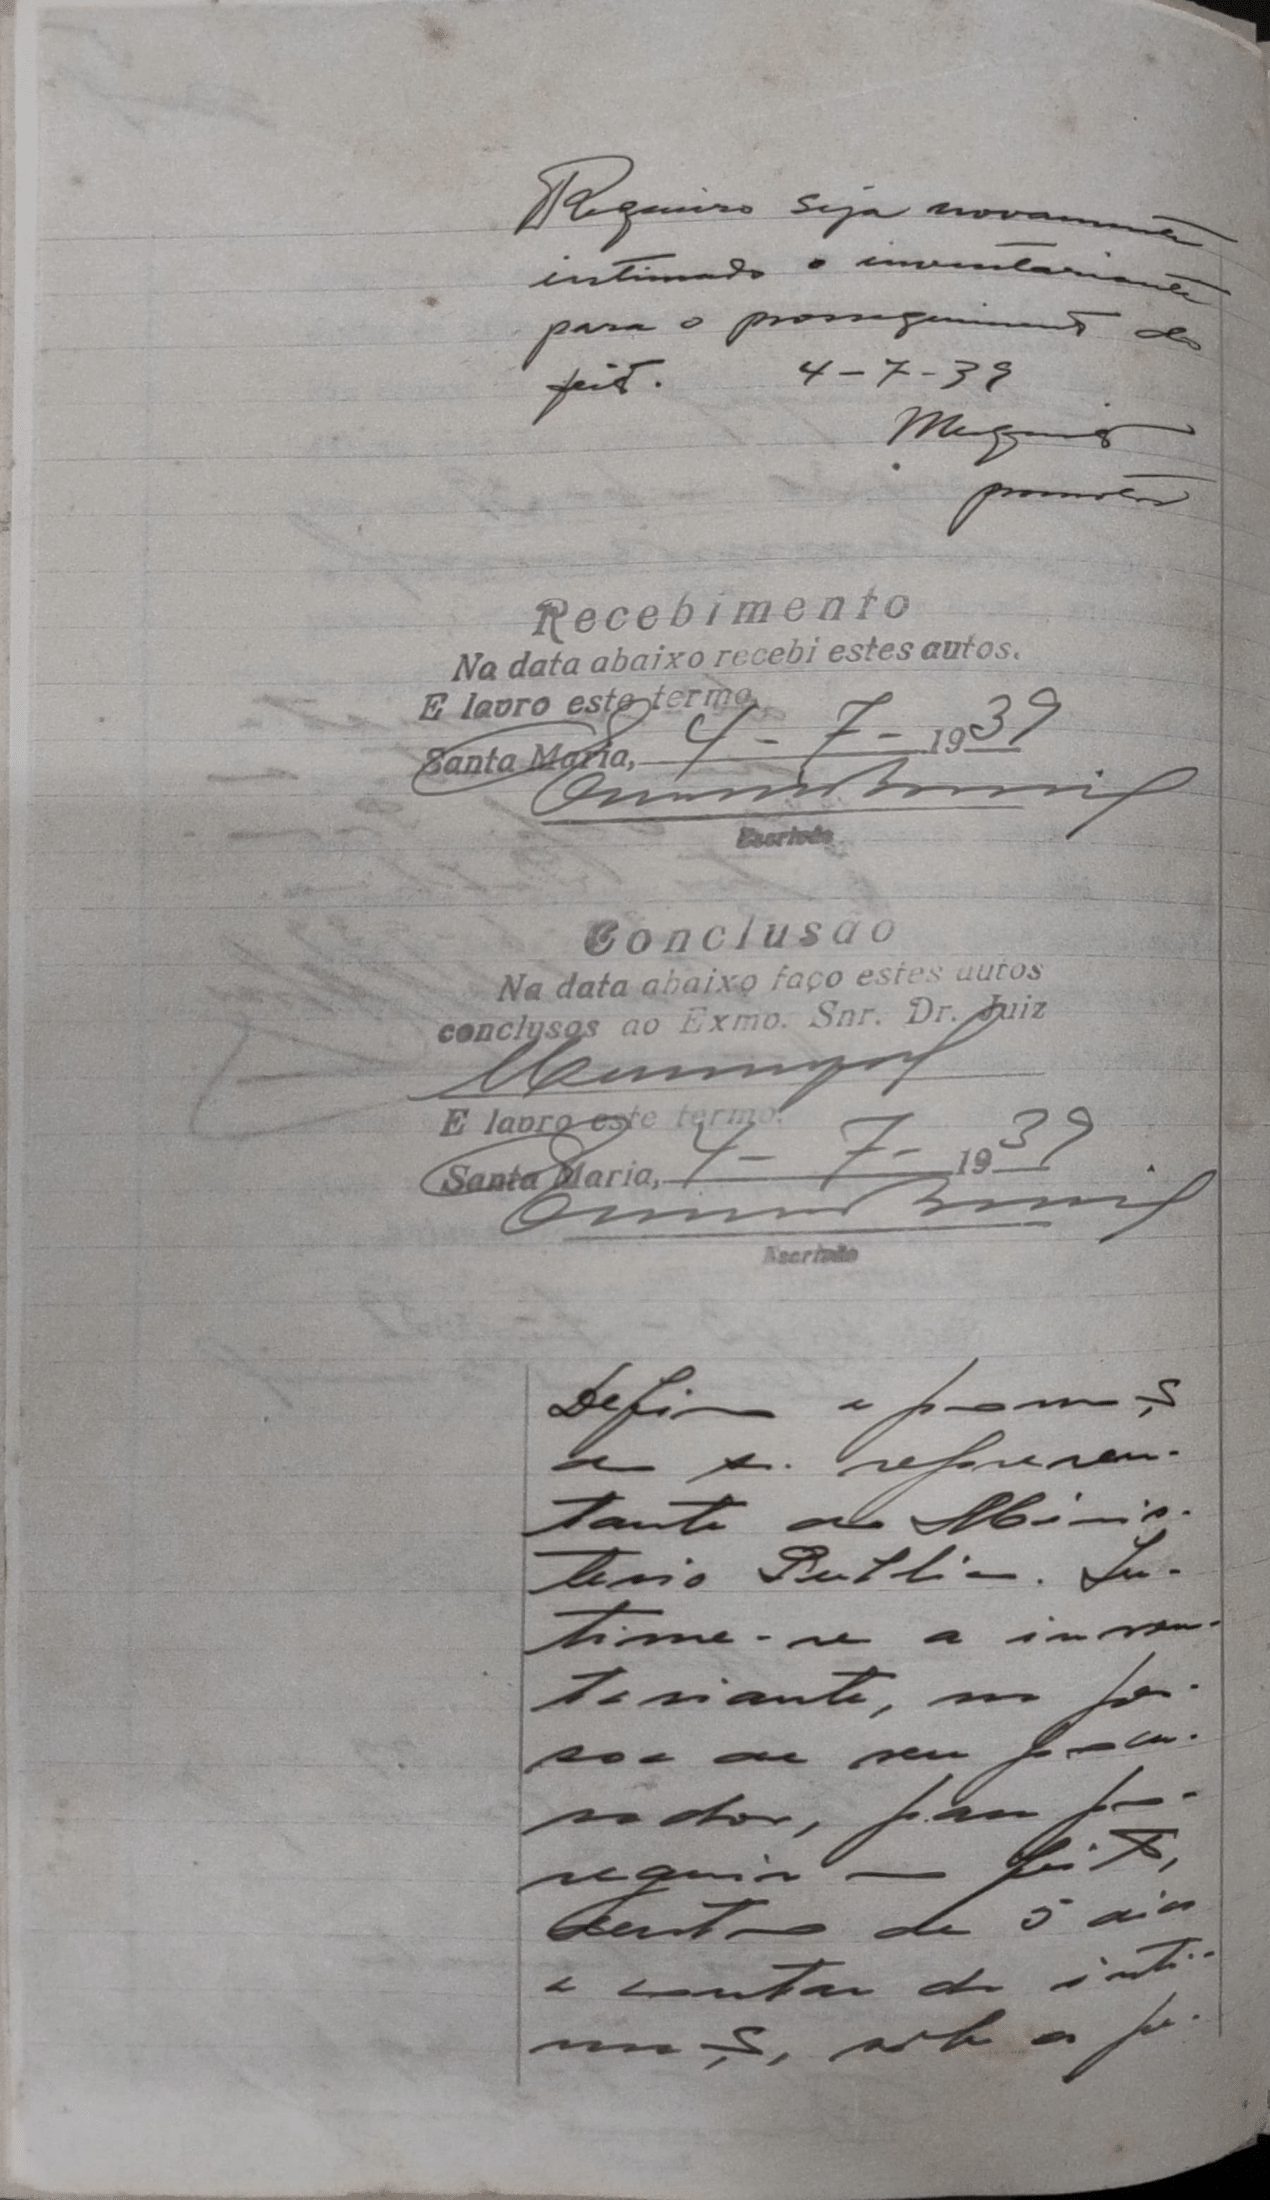 Requeiro seja novamente
intimado o inventariante
para o proseguimento do
feito. 4-7-39
promotor
Recebimento
Na data abaixo recebi estes autos.
E lavro este termo.
Santa Maria, 4-7-1939
Escrivão
Conclusão
Na data abaixo faço estes autos
conclusos ao Exmo. Snr. Dr. Juiz
Municipal
E lavro este termo.
Santa Maria, 4-7-1939
Escrivão
Defiro a promoç
do sr. represen-
tante do Minis-
terio Publico. In-
time-se a inven-
tariante, na pes-
soa de seu procu-
rador, para pro-
seguir no feito,
dentro de 5 dias
a contar da inti-
maç, sob a pe-